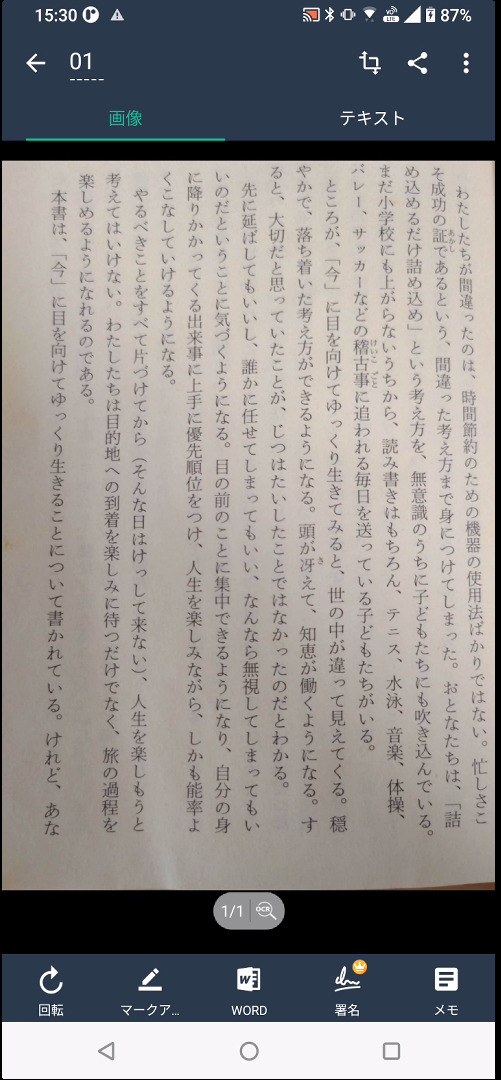 15:30
87%
01
画像
テキスト
わたしたちが間違ったのは、時間節約のための機器の使用法ばかりではない。忙しさこ
そ成功の証であるという、間違った考え方まで身につけてしまった。おとなたちは、「詰
あかし
め込めるだけ詰め込め」という考え方を、無意識のうちに子どもたちにも吹き込んでいる。
まだ小学校にも上がらないうちから、読み書きはもちろん、テニス、水泳、音楽、体操、
バレー、サッカーなどの稽古事に追われる毎日を送っている子どもたちがいる。
けいこごと
ところが、「今」に目を向けてゆっくり生きてみると、世の中が違って見えてくる。穏
やかで、落ち着いた考え方ができるようになる。頭が冴えて、知恵が働くようになる。す
さ
ると、大切だと思っていたことが、じつはたいしたことではなかったのだとわかる。
先に延ばしてもいいし、誰かに任せてしまってもいい、なんなら無視してしまってもい
いのだということに気づくようになる。目の前のことに集中できるようになり、自分の身
に降りかかってくる出来事に上手に優先順位をつけ、人生を楽しみながら、しかも能率よ
くこなしていけるようになる。
やるべきことをすべて片づけてから（そんな日はけっして来ない）、人生を楽しもうと
考えてはいけない。わたしたちは目的地への到着を楽しみに待つだけでなく、旅の過程を
楽しめるようになれるのである。
本書は、「今」に目を向けてゆっくり生きることについて書かれている。けれど、あな
1/1
OCR
回転
マークア...
WORD
署名
メモ